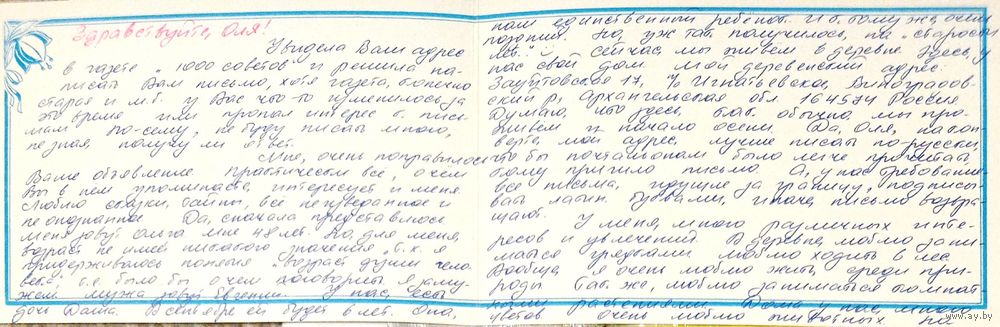 Здравствуйте, Оля!
Увидела Ваш адрес
в газете "1000 советов" и решила на-
писать Вам письмо, хотя газета, конечно
старая и м.б. у Вас что-то изменилось за
это время или пропал интерес к пись-
мам По-сему, не буду писать много,
не зная, получу ли ответ.
Мне, очень понравилось
Ваше объявление практически все, о чем
Вы в нем упоминаете, интересует и меня.
Люблю сказки, тайны, все неизведанное и
неопознанное Да, сначала представлюсь
меня зовут Ольга мне 48 лет. Но, для меня,
возраст не имеет никакого значения т.к. я
придерживаюсь понятия "возраст души чело
века", т.е. было бы о чем поговорить. Я заму-
жем мужа зовут У нас есть
дочь Даша. В сентябре ей будет 6 лет. Она,
наш единственный ребенок. И к тому же, очень
поздний. Но, уж так получилось, на "старости
лет" Сейчас мы живем в деревне Здесь, у
нас свой дом Мой деревенский адрес:
17, Игнатьевская, Виноградов-
ский р, Архангельская обл 164574 Россия
Думаю, что здесь, как обычно, мы про-
живем и начало осени. Да, Оля, на кон-
верте, мой адрес, лучше писать по-русски,
что бы почтальонам было легче прочитать,
кому пришло письмо. А, у нас требование
все письма, идущие за границу, подписы-
вать латин. буквами, иначе, письмо возвра-
щают.
У меня, много различных инте-
ресов и увлечений. В деревне, люблю зани-
маться грядками люблю ходить в лес.
Вообще, я очень люблю жить среди при-
роды Так же, люблю заниматься комнат-
ными растениями. Дома у нас, много
цветов Очень люблю животных На
www.ay.by